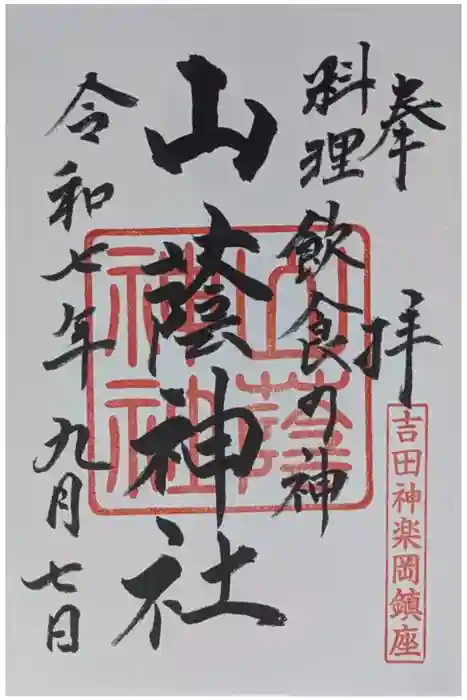 奉拝
料理飲食の神
山蔭神社
令和七年九月七日
山蔭
神社
吉田神楽岡鎮座